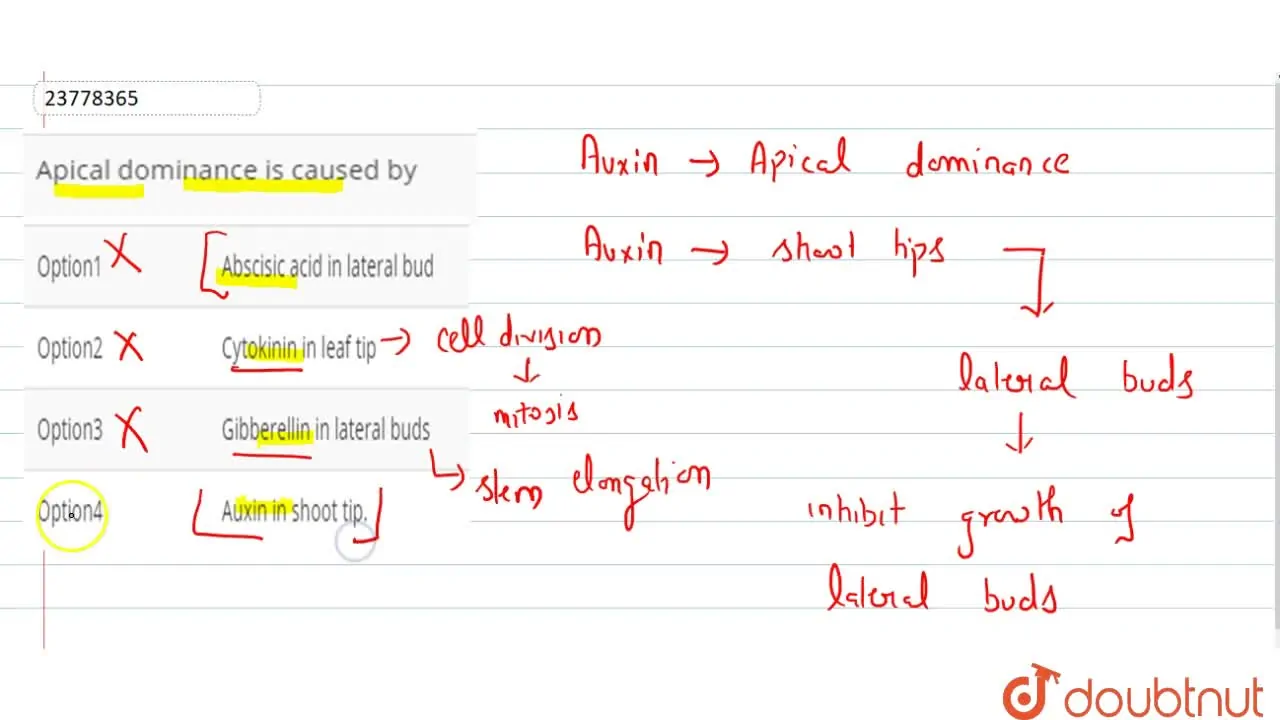 23778365
Apical dominance is caused by
Option1 X [ Abscisic acid in lateral bud
Option2 X Cytokinin in leaf tip → cell division
↓
mitosis
Option3 X Gibberellin in lateral buds
↳ stem elongation
Option4 [ Auxin in shoot tip. ]
Auxin → Apical dominance
Auxin → shoot tips
↓
lateral buds
↓
inhibit growth of
lateral buds
doubtnut